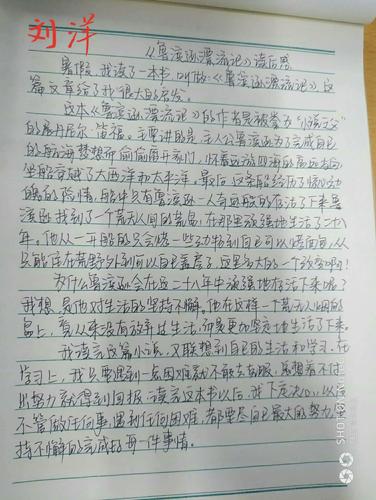 刘洋
《鲁滨逊漂流记》读后感
暑假,我读了一本书,叫做《鲁滨逊漂流记》这
篇文章给了我很大的启发。
这本《鲁滨逊漂流记》的作者是被拳为“小说之父”
的丹尼尔·笛福。主要讲的是:主人公鲁滨逊为了完成自己
的航海梦想而偷偷离开家门,怀着远游四海的高远志向
坐船穿越了大西洋和太平洋。最后,这条船经历了惊心动
魄的险情,船中只有鲁滨逊一人奇迹般的存活了下来鲁
滨逊找到了一个荒无人间的荒岛,在那里顽强地生活了二十八
年。他从一开始的只会
在野外到可以自己盖房子,这是多大的一个改变啊!
为什么鲁滨逊会在这二十八年中顽强地存活下来呢?
我想,是他对生活的坚持不懈。他在这样一个荒无人烟的
岛上,看从来没有放弃过生活,而是更加坚定地生活了下来。
我读完这篇小说,又联想到自己的生活和学习。在
学习上,我只要遇到一点困难就不敢去克服,总想着不付
出努力就得到回报。读完这本书以后,我下定决心,以后
不管做任何事,遇到任何困难,都要尽自己最大的努力,坚
持不懈的完成好每一件事情。
SHOT ON